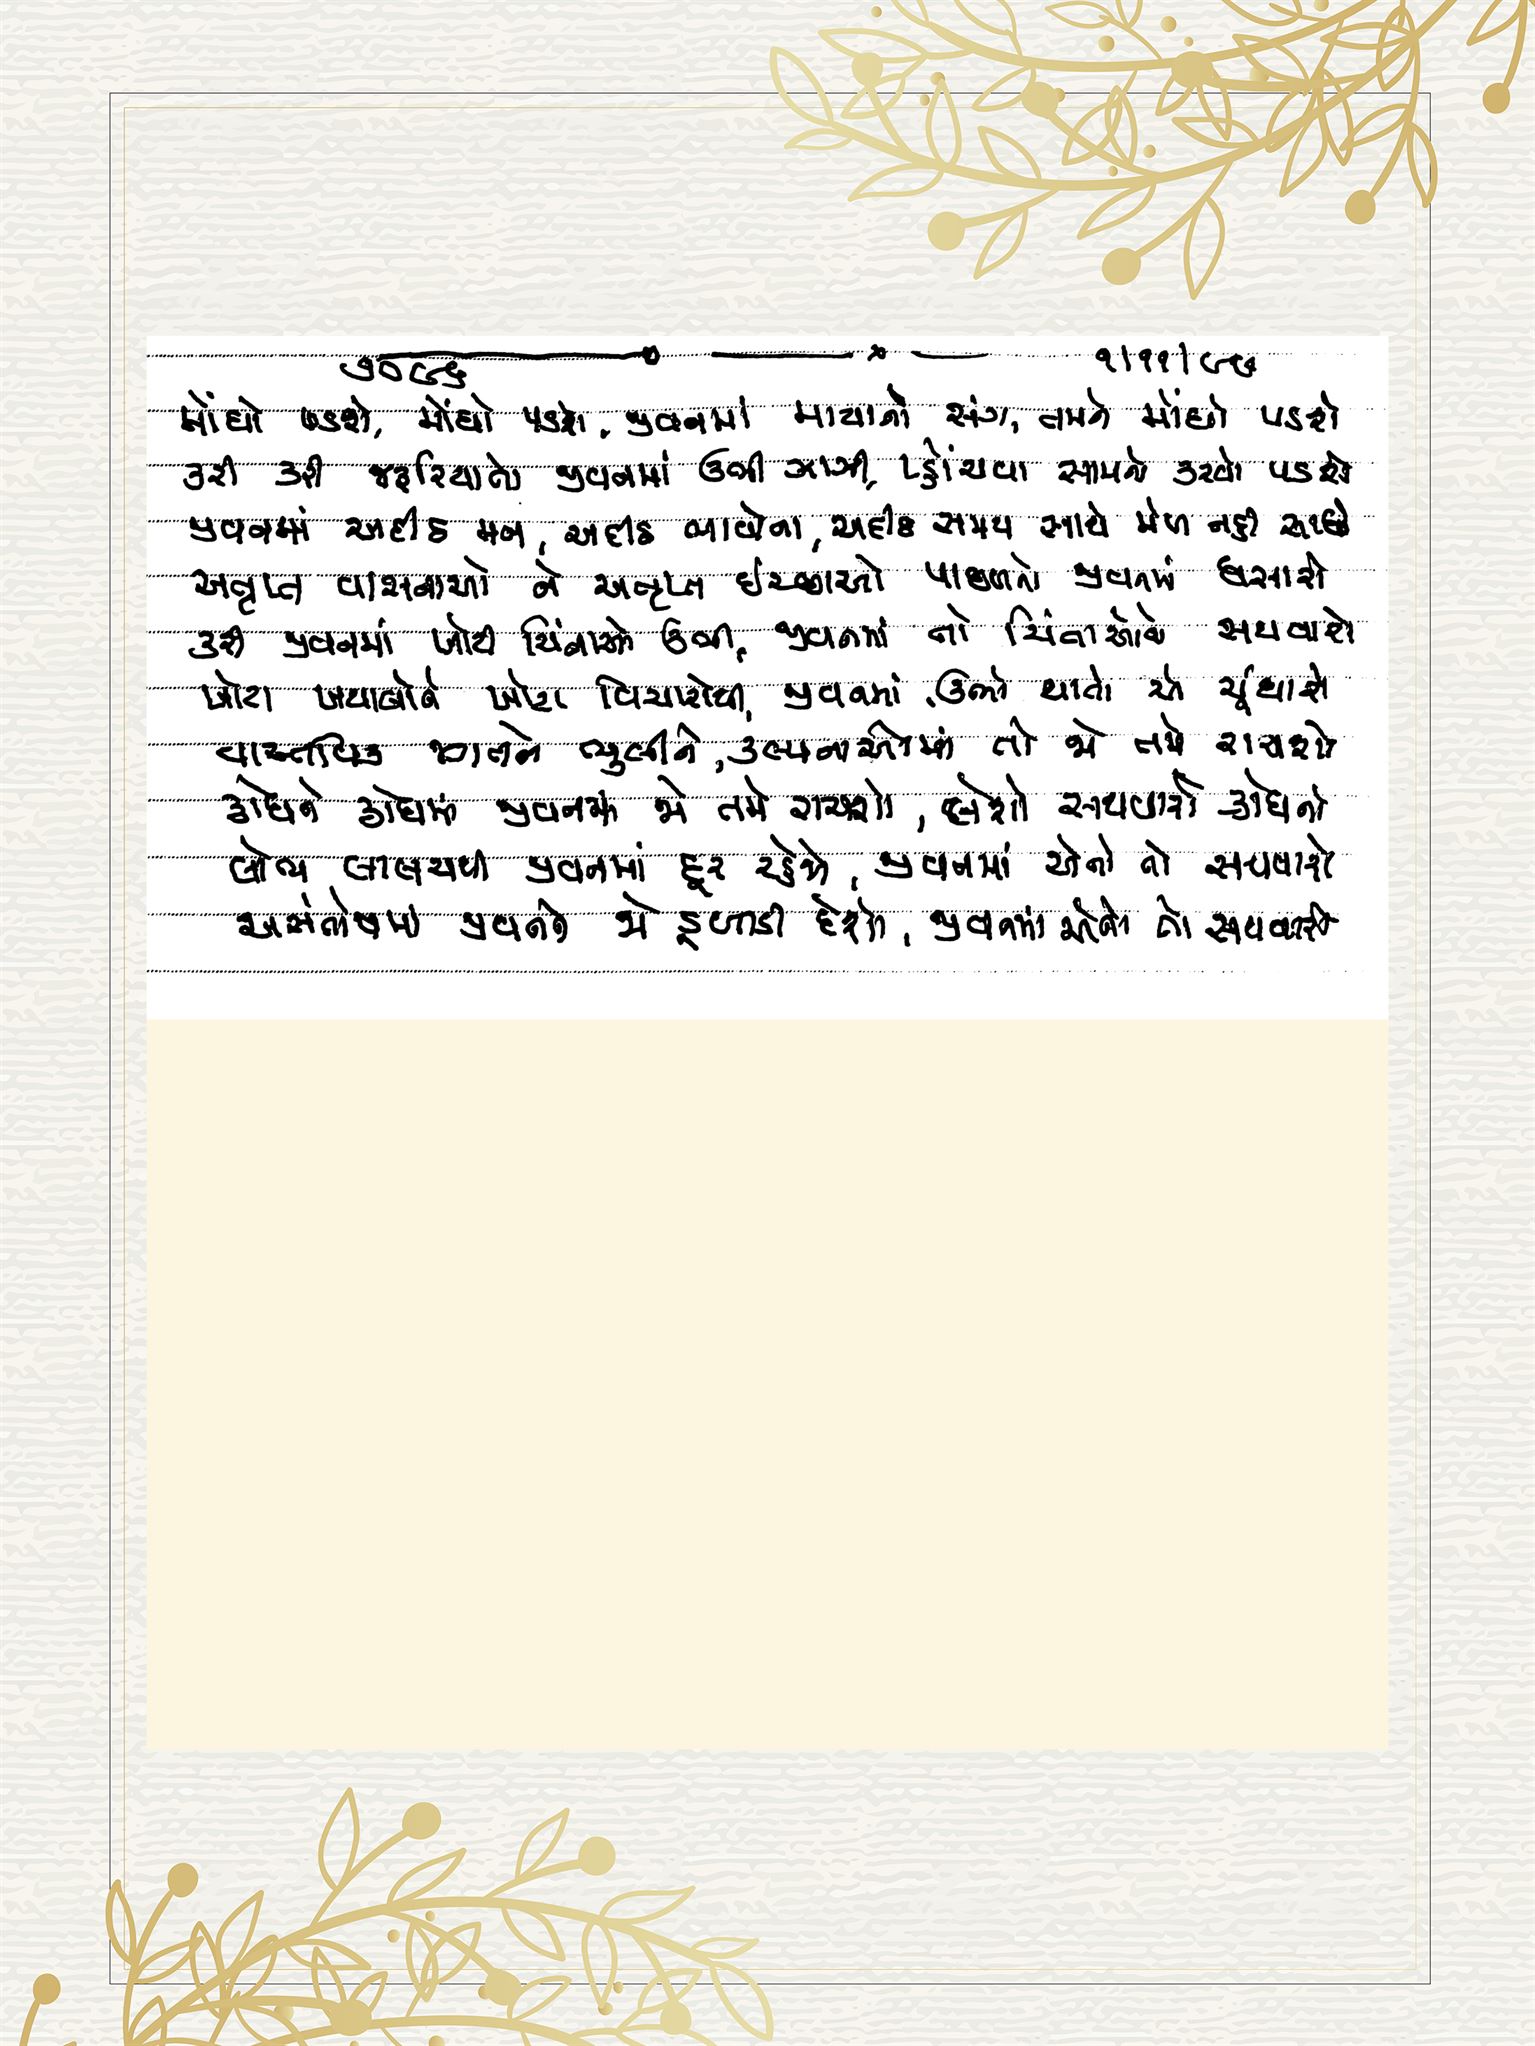 ૭૦૯૬ ૧/૧૧/૯૭
મોંઘો પડશે, મોંઘો પડશે, જીવનમાં માયાનો સંગ, તમને મોંઘો પડશે
કરી કરી જરૂરિયાતો જીવનમાં ઉભી ઝાઝી, પહોંચવા સામનો કરવો પડશે
જીવનમાં અદીઠ મન, અદીઠ ભાવોના, અદીઠ સમય સાથે મેળ નહી
અતૃપ્ત વાસનાઓ ને અતૃપ્ત ઈચ્છાઓ પાછળતો જીવનમાં ઘસાશે
કરી જીવનમાં ખોટી ચિંતાઓ ઉભી, જીવનમાં તો ચિંતાઓથી સધવાશે
ખોટા ખયાલોને ખોટા વિચારોથી, જીવનમાં ઉભો થાતો એ ચૂંથાશે
વાસ્તવિક જગતને ભુલીને, કલ્પનાઓમાં તો જો તમે રાચશો
ક્રોધને ક્રોધમાં જીવનમાં જો તમે રાચશો, લેશો સથવારો ક્રોધનો
લોભ લાલચથી જીવનમાં દૂર રહેજો, જીવનમાં એનો તો સથવારો
અસંતોષમાં જીવનને જો ડૂબાડી દેશો, જીવનમાં એનો તો સથવારો